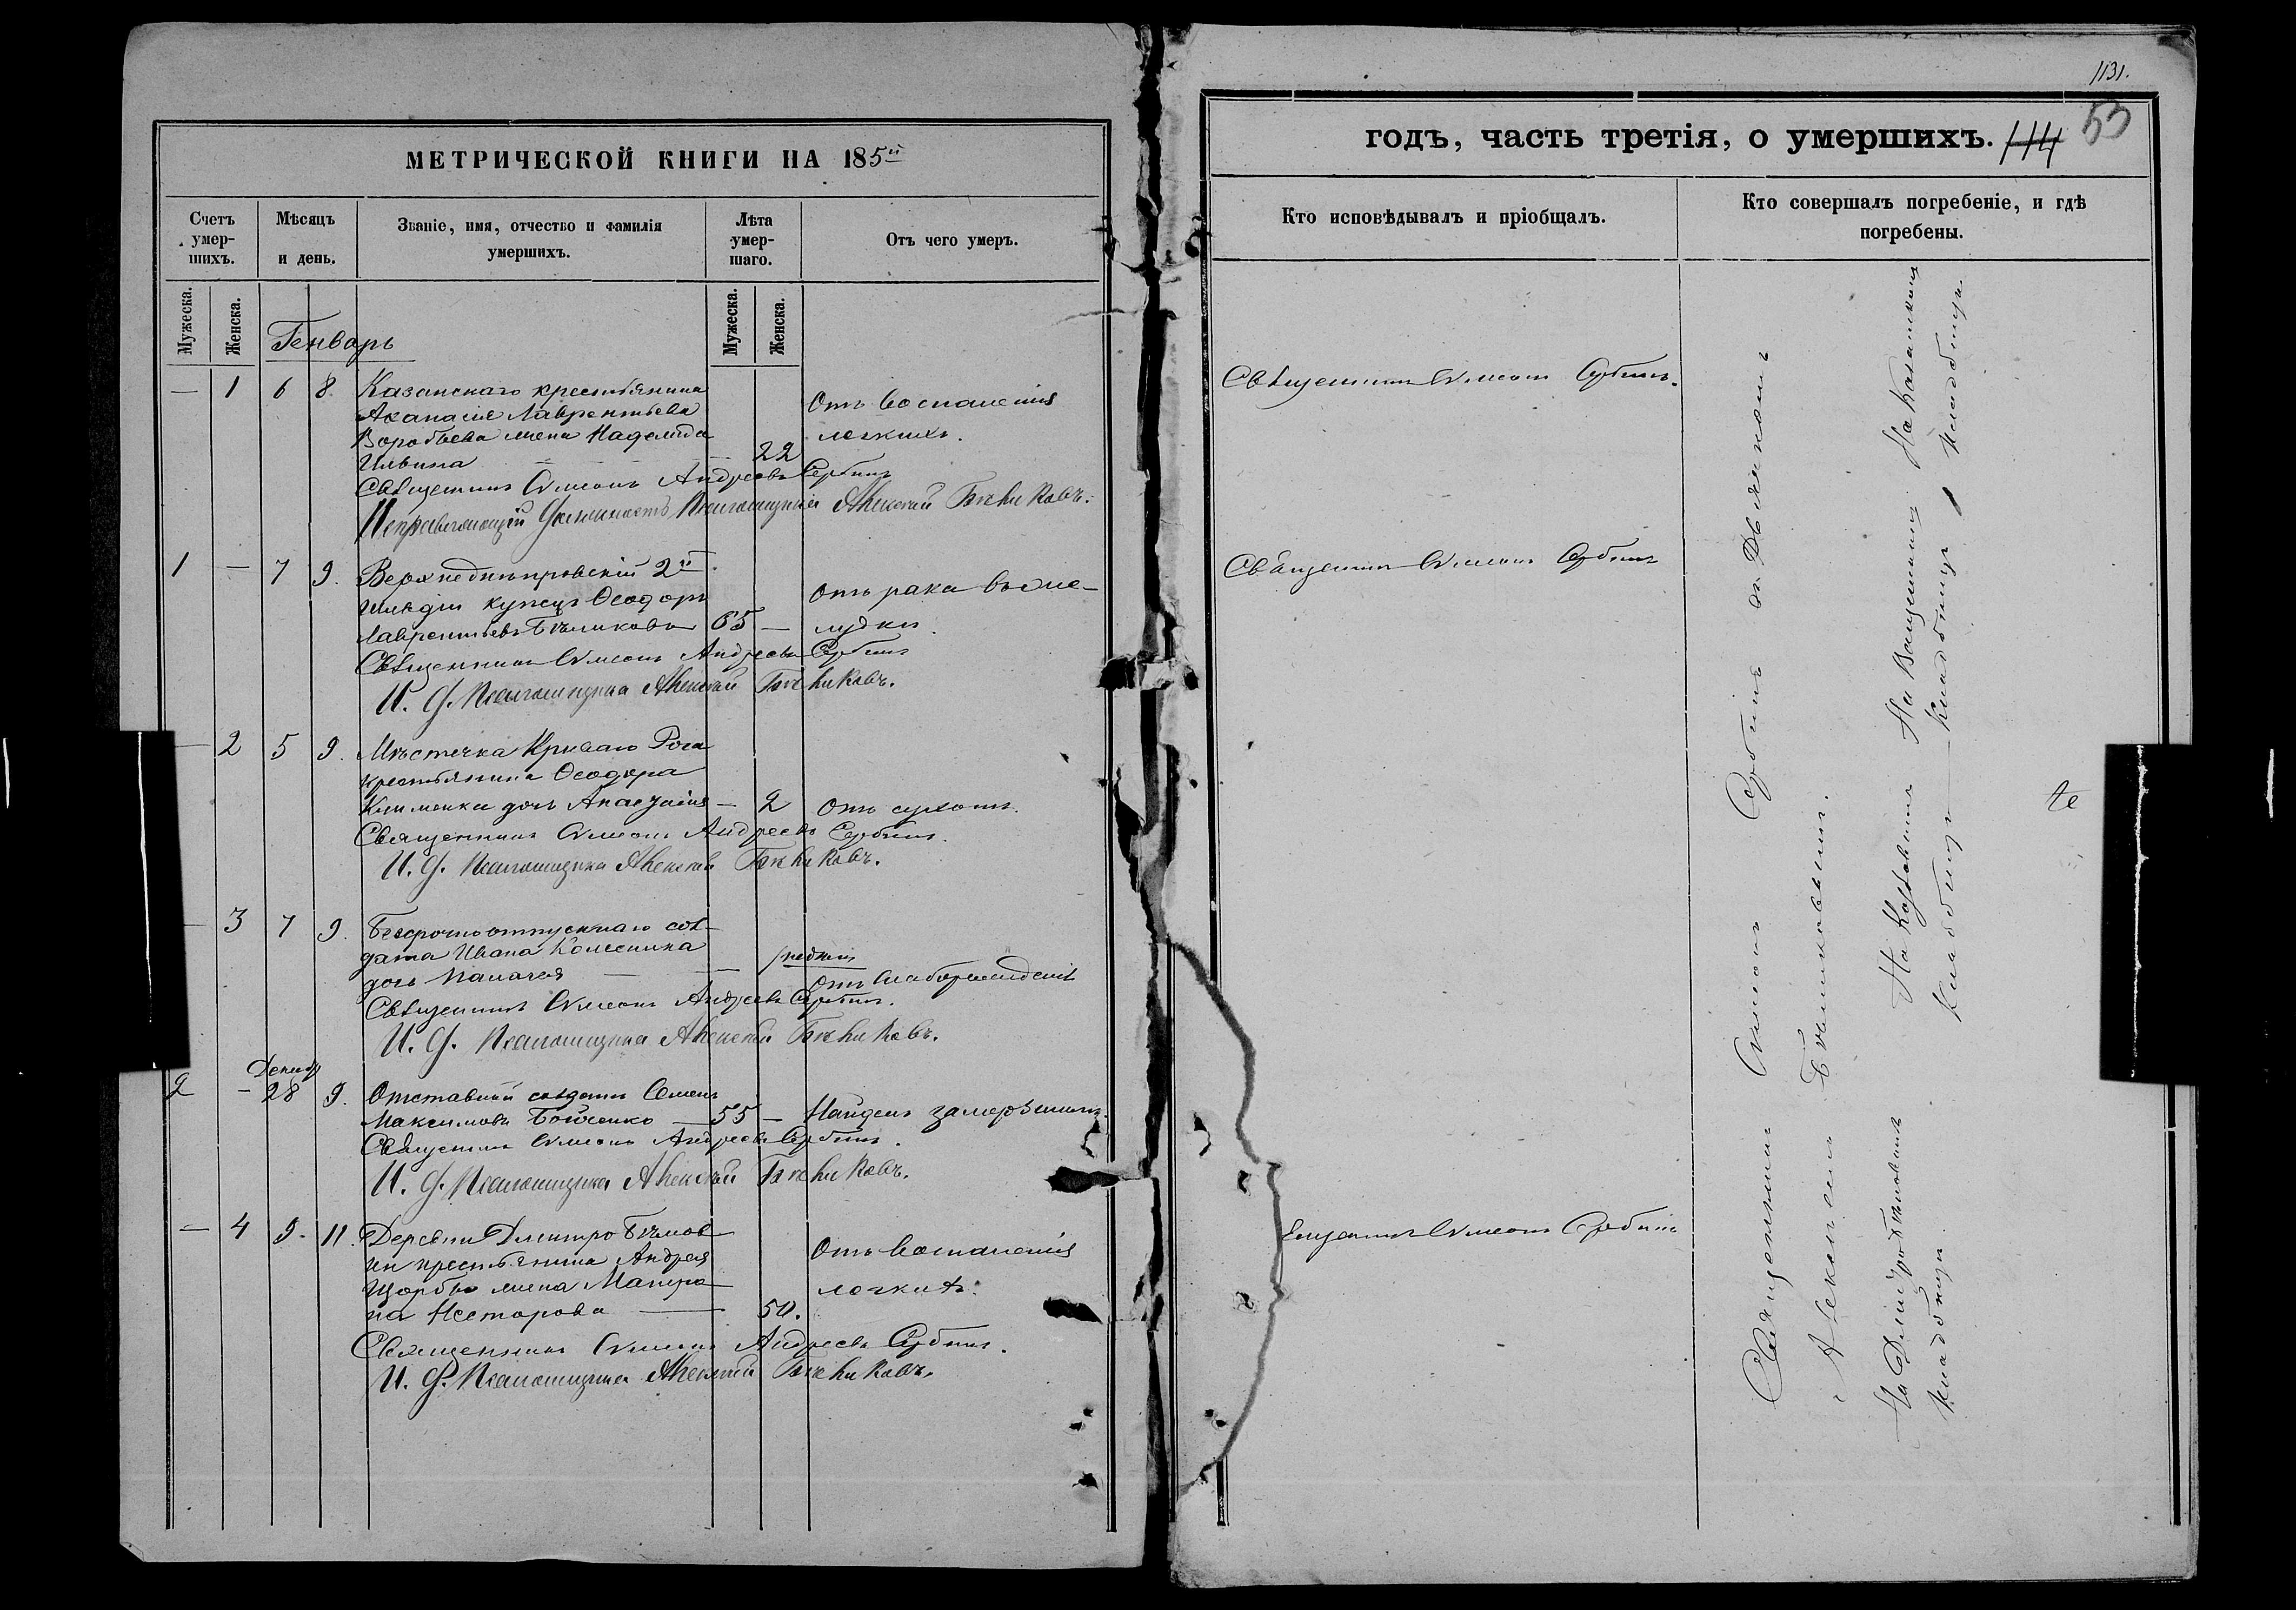 МЕТРИЧЕСКОЙ КНИГИ НА 185й
Счетъ умер-шихъ.
Мѣсяцъ и день.
Званіе, имя, отчество и фамилія умершихъ.
Лѣта умер-шаго.
Отъ чего умеръ.
Мужеска.
Женска.
Мужеска.
Женска.
Генварь
— 1 6 8. Казанскаго крестьянина
Аѳанасія Лаврентьева Отъ воспаленія
Воробьева жена легкихъ.
Ильина — 22
Священникъ Симеонъ Андреевъ Сербинъ
Исправляющій Должность Псаломщика Алексѣй Бѣликовъ.
1 — 7 9. Верхнеднѣпровскій 2й
гильдіи купецъ Ѳеодоръ Отъ рака въ же-
Лаврентьевъ Бѣликовъ 65 — лудкѣ.
Священникъ Симеонъ Андреевъ Сербинъ
И. Д. Псаломщика Алексѣй Бѣликовъ.
— 2 5 9. Мѣстечка Криваго Рога
крестьянина Ѳеодора
Клименка дочь Анастасія — 2 Отъ сухотъ.
Священникъ Симеонъ Андреевъ Сербинъ.
И. Д. Псаломщика Алексѣй Бѣликовъ.
— 3 7 9. Безсрочноотпускнаго сол-
дата Ивана Колесника
дочь —
Отъ слаборожденія
Священникъ Симеонъ Андреевъ Сербинъ.
И. Д. Псаломщика Алексѣй Бѣликовъ.
Декабр
2 — 28 9. Отставной солдатъ Семенъ
Максимовъ Бойченко — 55 — Найденъ замерзшимъ.
Священникъ Симеонъ Андреевъ Сербинъ.
И. Д. Псаломщика Алексѣй Бѣликовъ.
— 4 9. 11. Деревни Дмитро Бѣлов
ки крестьянина Андрея Отъ воспаленія
Щербы жена Матро легкихъ.
на Несторова — 50.
Священникъ Симеонъ Андреевъ Сербинъ.
И. Д. Псаломщика Алексѣй Бѣликовъ.
1131.
годъ, часть третія, о умершихъ. 114 53
Кто исповѣдывалъ и пріобщалъ.
Кто совершалъ погребеніе, и гдѣ погребены.
Священникъ Симеонъ Сербинъ.
Священникъ Симеонъ Сербинъ
Священникъ Симеонъ Сербинъ
Священникъ Симеонъ Сербинъ съ
Алексѣемъ Бѣликовымъ.
На Казанкинъ
кладбищѣ
кладбищѣ
кладбищѣ
кладбищѣ.